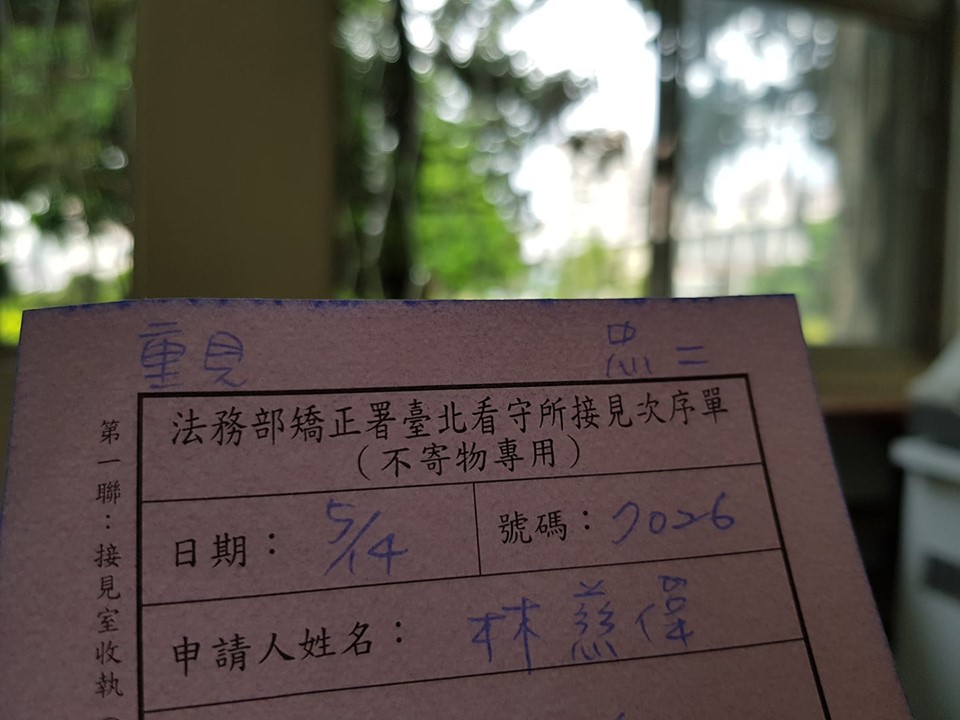 重見 忠二
法務部矯正署臺北看守所接見次序單
（不寄物專用）
日期： 5/14 號碼： 7026
申請人姓名： 林慈偉
第一聯：接見室收執